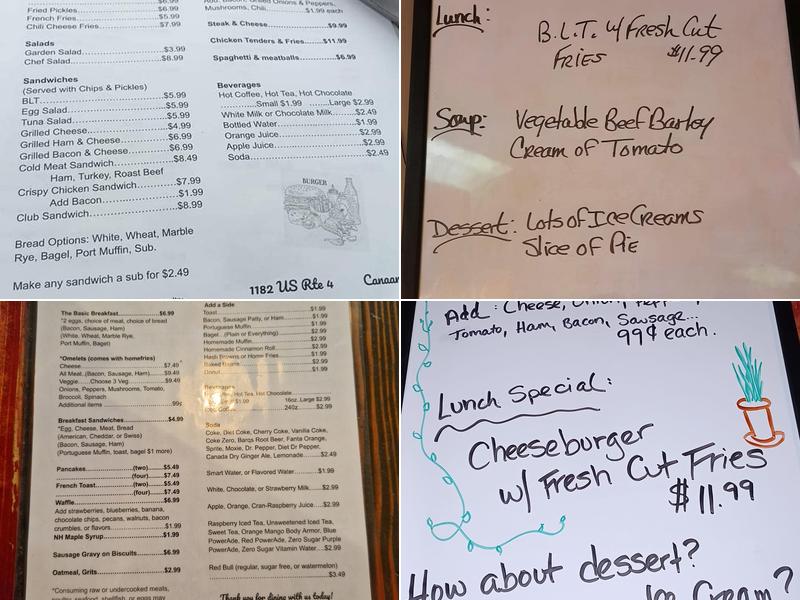 Fried Pickles...........$6.99
French Fries............$5.99
Chili Cheese Fries..........$7.99
Salads
Garden Salad..................$3.99
Chef Salad.....................$8.99
Sandwiches
(Served with Chips & Pickles)
BLT..............................$5.99
Egg Salad......................$5.99
Tuna Salad....................$5.99
Grilled Cheese...............$4.99
Grilled Ham & Cheese.......$6.99
Grilled Bacon & Cheese.....$6.99
Cold Meat Sandwich........$8.49
Ham, Turkey, Roast Beef
Crispy Chicken Sandwich.....$7.99
Add Bacon...............$1.99
Club Sandwich...............$8.99
Bread Options: White, Wheat, Marble
Rye, Bagel, Port Muffin, Sub.
Make any sandwich a sub for $2.49
Mushrooms, Chili............$1.99 each
Steak & Cheese....................$9.99
Chicken Tenders & Fries.....$11.99
Spaghetti & meatballs..........$6.99
Beverages
Hot Coffee, Hot Tea, Hot Chocolate
..........Small $1.99 .......Large $2.99
White Milk or Chocolate Milk.....$2.49
Bottled Water....................$1.99
Orange Juice.....................$2.99
Apple Juice......................$2.99
Soda...............................$2.49
BURGER
1182 US Rte 4 Canaan
Lunch:
B.L.T. w/ Fresh Cut
Fries $11.99
Soup: Vegetable Beef Barley
Cream of Tomato
Dessert: Lots of Ice Creams
Slice of Pie
The Basic Breakfast...............$6.99
*2 eggs, choice of meat, choice of bread
(Bacon, Sausage, Ham)
(White, Wheat, Marble Rye,
Port Muffin, Bagel)
*Omelets (comes with homefries)
Cheese..............................$7.49
All Meat..(Bacon, Sausage, Ham)....$9.49
Veggie......Choose 3 Veg............$9.49
Onions, Peppers, Mushrooms, Tomato,
Broccoli, Spinach
Additional items.....................99¢
Breakfast Sandwiches...............$4.99
*Egg, Cheese, Meat, Bread
(American, Cheddar, or Swiss)
(Bacon, Sausage, Ham)
(Portuguese Muffin, toast, bagel $1 more)
Pancakes..................(two).....$5.49
(four)......$7.49
French Toast..............(two).....$5.49
(four)......$7.49
Waffle................................$6.99
Add strawberries, blueberries, banana,
chocolate chips, pecans, walnuts, bacon
crumbles, or flavors...................$1.99
NH Maple Syrup.....................$1.99
Sausage Gravy on Biscuits.........$6.99
Oatmeal, Grits.......................$2.99
*Consuming raw or undercooked meats,
poultry, seafood, shellfish, or eggs may
Add a Side
Toast................................$1.99
Bacon, Sausage Patty, or Ham.......$1.99
Portuguese Muffin...................$1.99
Bagel...(Plain or Everything).......$1.99
Homemade Muffin...................$2.99
Homemade Cinnamon Roll..........$2.99
Hash Browns or Home Fries........$1.99
Baked Beans.......................$2.99
Donut...............................$1.99
Beverages
Hot Tea, Hot Chocolate
16oz. Large $2.99
24oz.......$2.99
Soda
Coke, Diet Coke, Cherry Coke, Vanilla Coke,
Coke Zero, Barqs Root Beer, Fanta Orange,
Sprite, Moxie, Dr. Pepper, Diet Dr Pepper,
Canada Dry Ginger Ale, Lemonade.....$2.49
Smart Water, or Flavored Water.....$1.99
White, Chocolate, or Strawberry Milk....$2.99
Apple, Orange, Cran-Raspberry Juice....$2.99
Raspberry Iced Tea, Unsweetened Iced Tea,
Sweet Tea, Orange Mango Body Armor, Blue
PowerAde, Red PowerAde, Zero Sugar Purple
PowerAde, Zero Sugar Vitamin Water....$2.99
Red Bull (regular, sugar free, or watermelon)
..............................$3.49
Thank you for dining with us today!
Add: Cheese, Onion, Pepp
Tomato, Ham, Bacon, Sausage...
99¢ each.
Lunch Special:
Cheeseburger
w/ Fresh Cut Fries
$11.99
How about dessert?
Ice Cream?